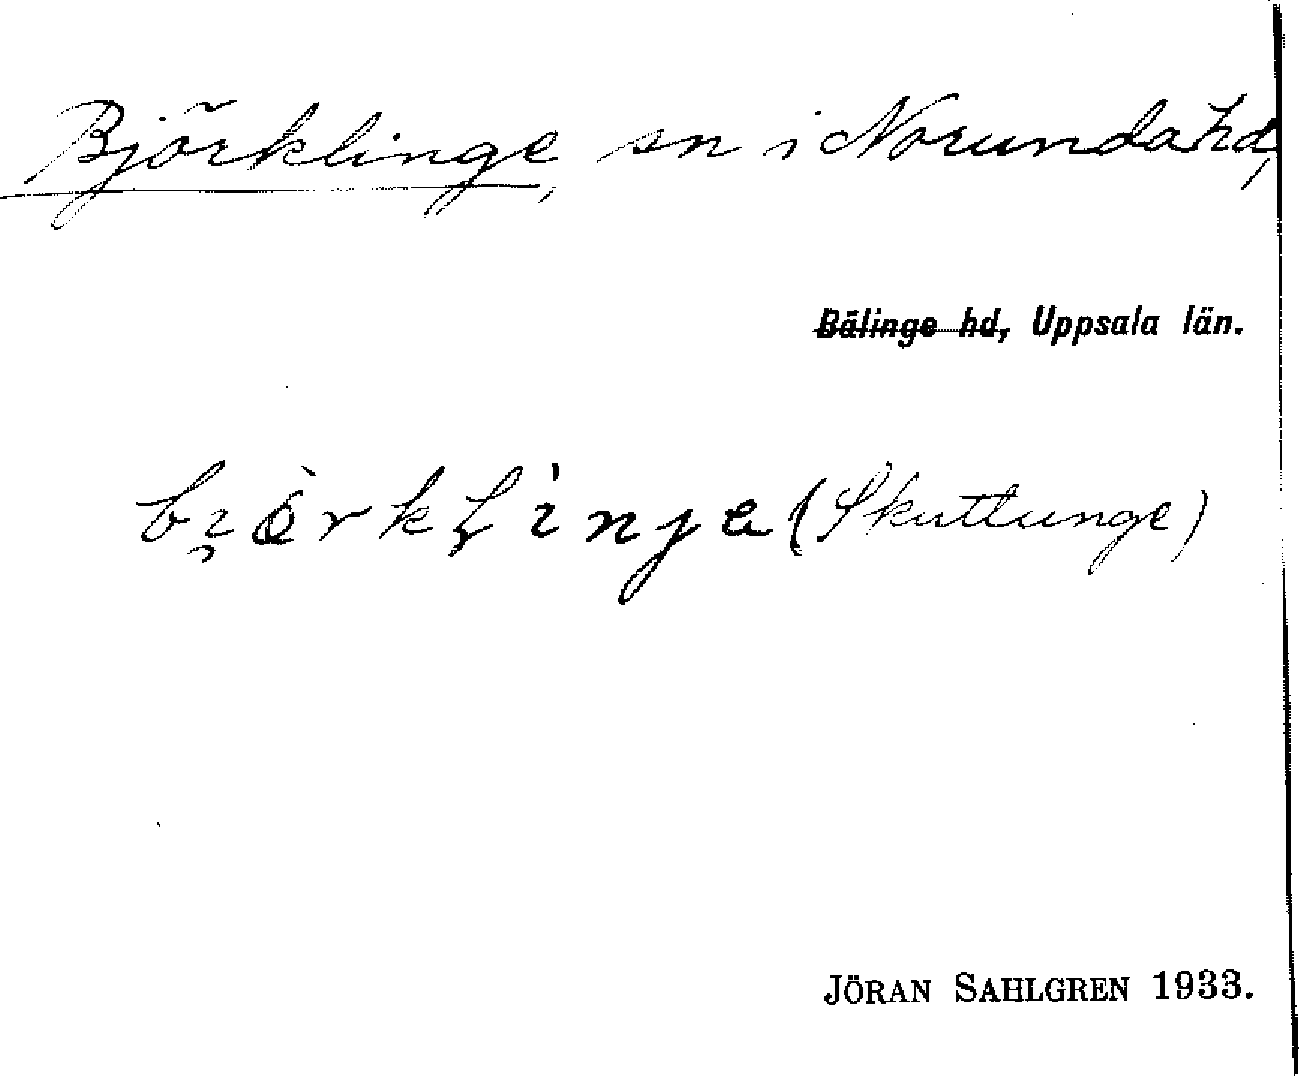 Björklinge, sn i Norunda hd,
Bälinge hd, Uppsala län.
(Skuttunge)
JÖRAN SAHLGREN 1933.